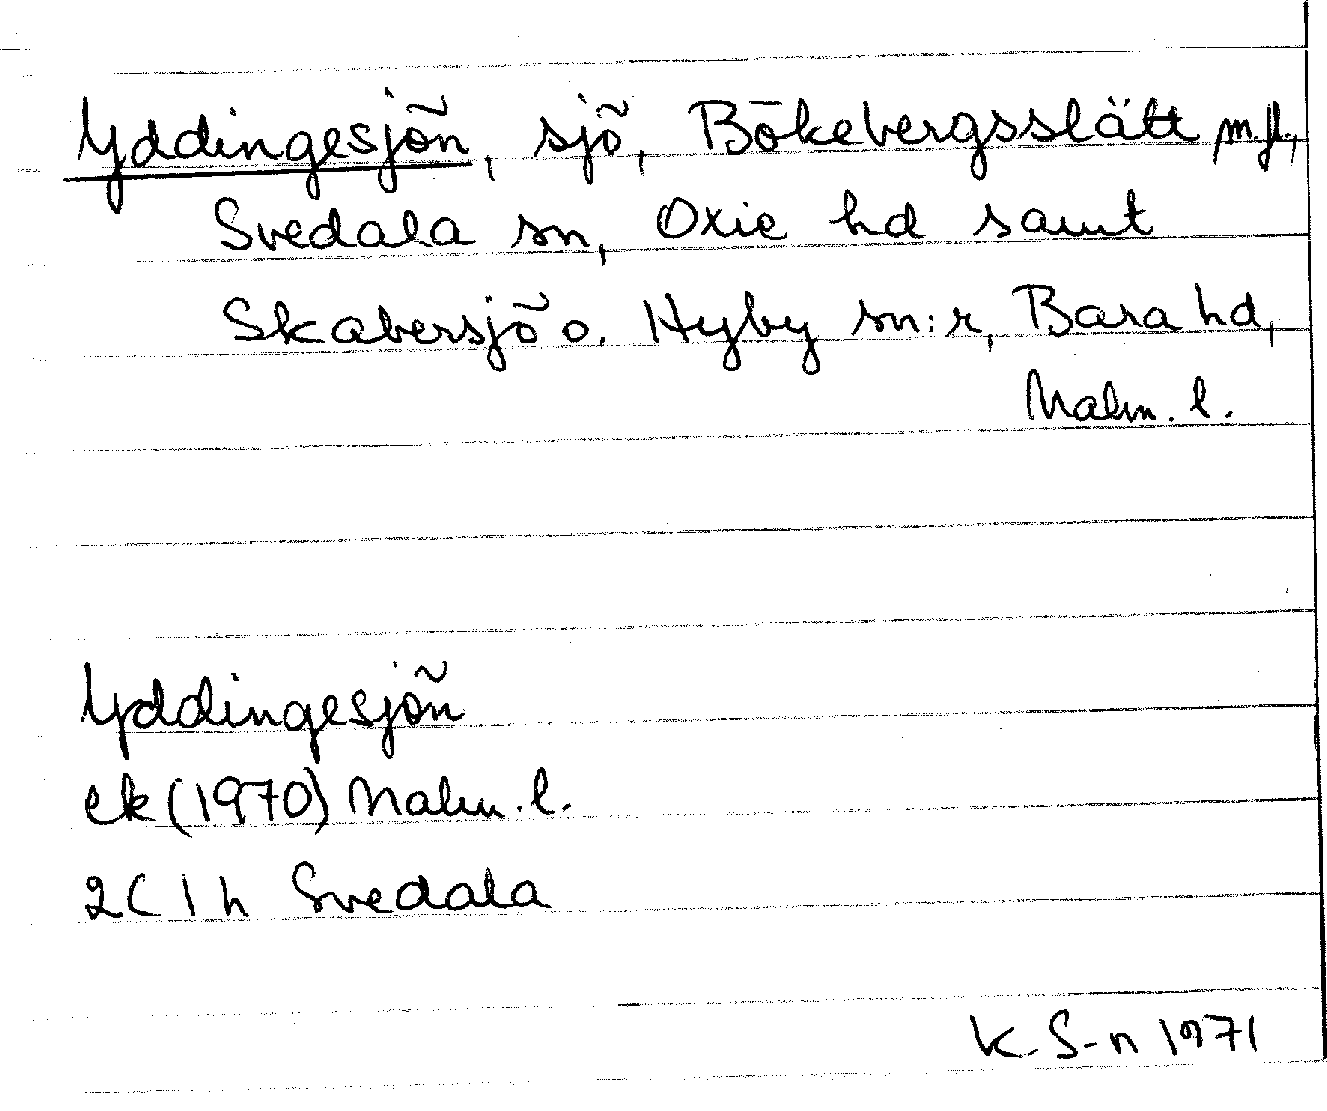 Yddingesjön, sjö, Bökebergsslätt m.fl.,
Svedala sn, Oxie hd samt
Skabersjö o. Hyby sn:r, Bara hd,
Malm. l.
Yddingesjön
ek (1970) Malm. l.
2C 1h Svedala
K. S-n 1971